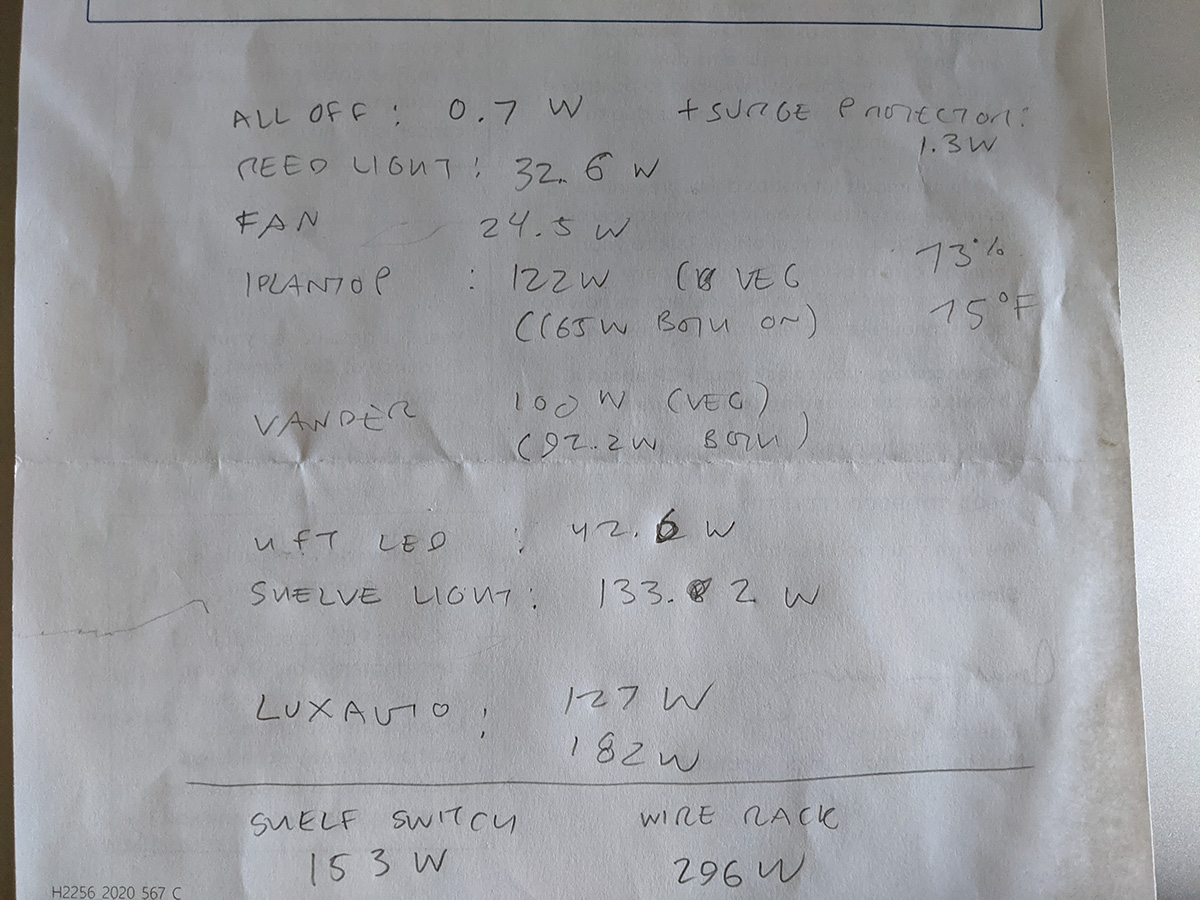 ALL OFF : 0.7 W + SURGE PROTECTOR :
1.3 W
REED LIGHT : 32.6 W
FAN 24.5 W
73%
IPLANTOP : 122W (VEG
75°F
(165W BOTH ON)
VANDER 100 W (VEG)
(92.2W BOTH)
4 FT LED : 42.6 W
SHELVE LIGHT : 133.2 W
LUXAUTO : 127 W
182 W
SHELF SWITCH WIRE RACK
153 W 296 W
H2256_2020_567_C